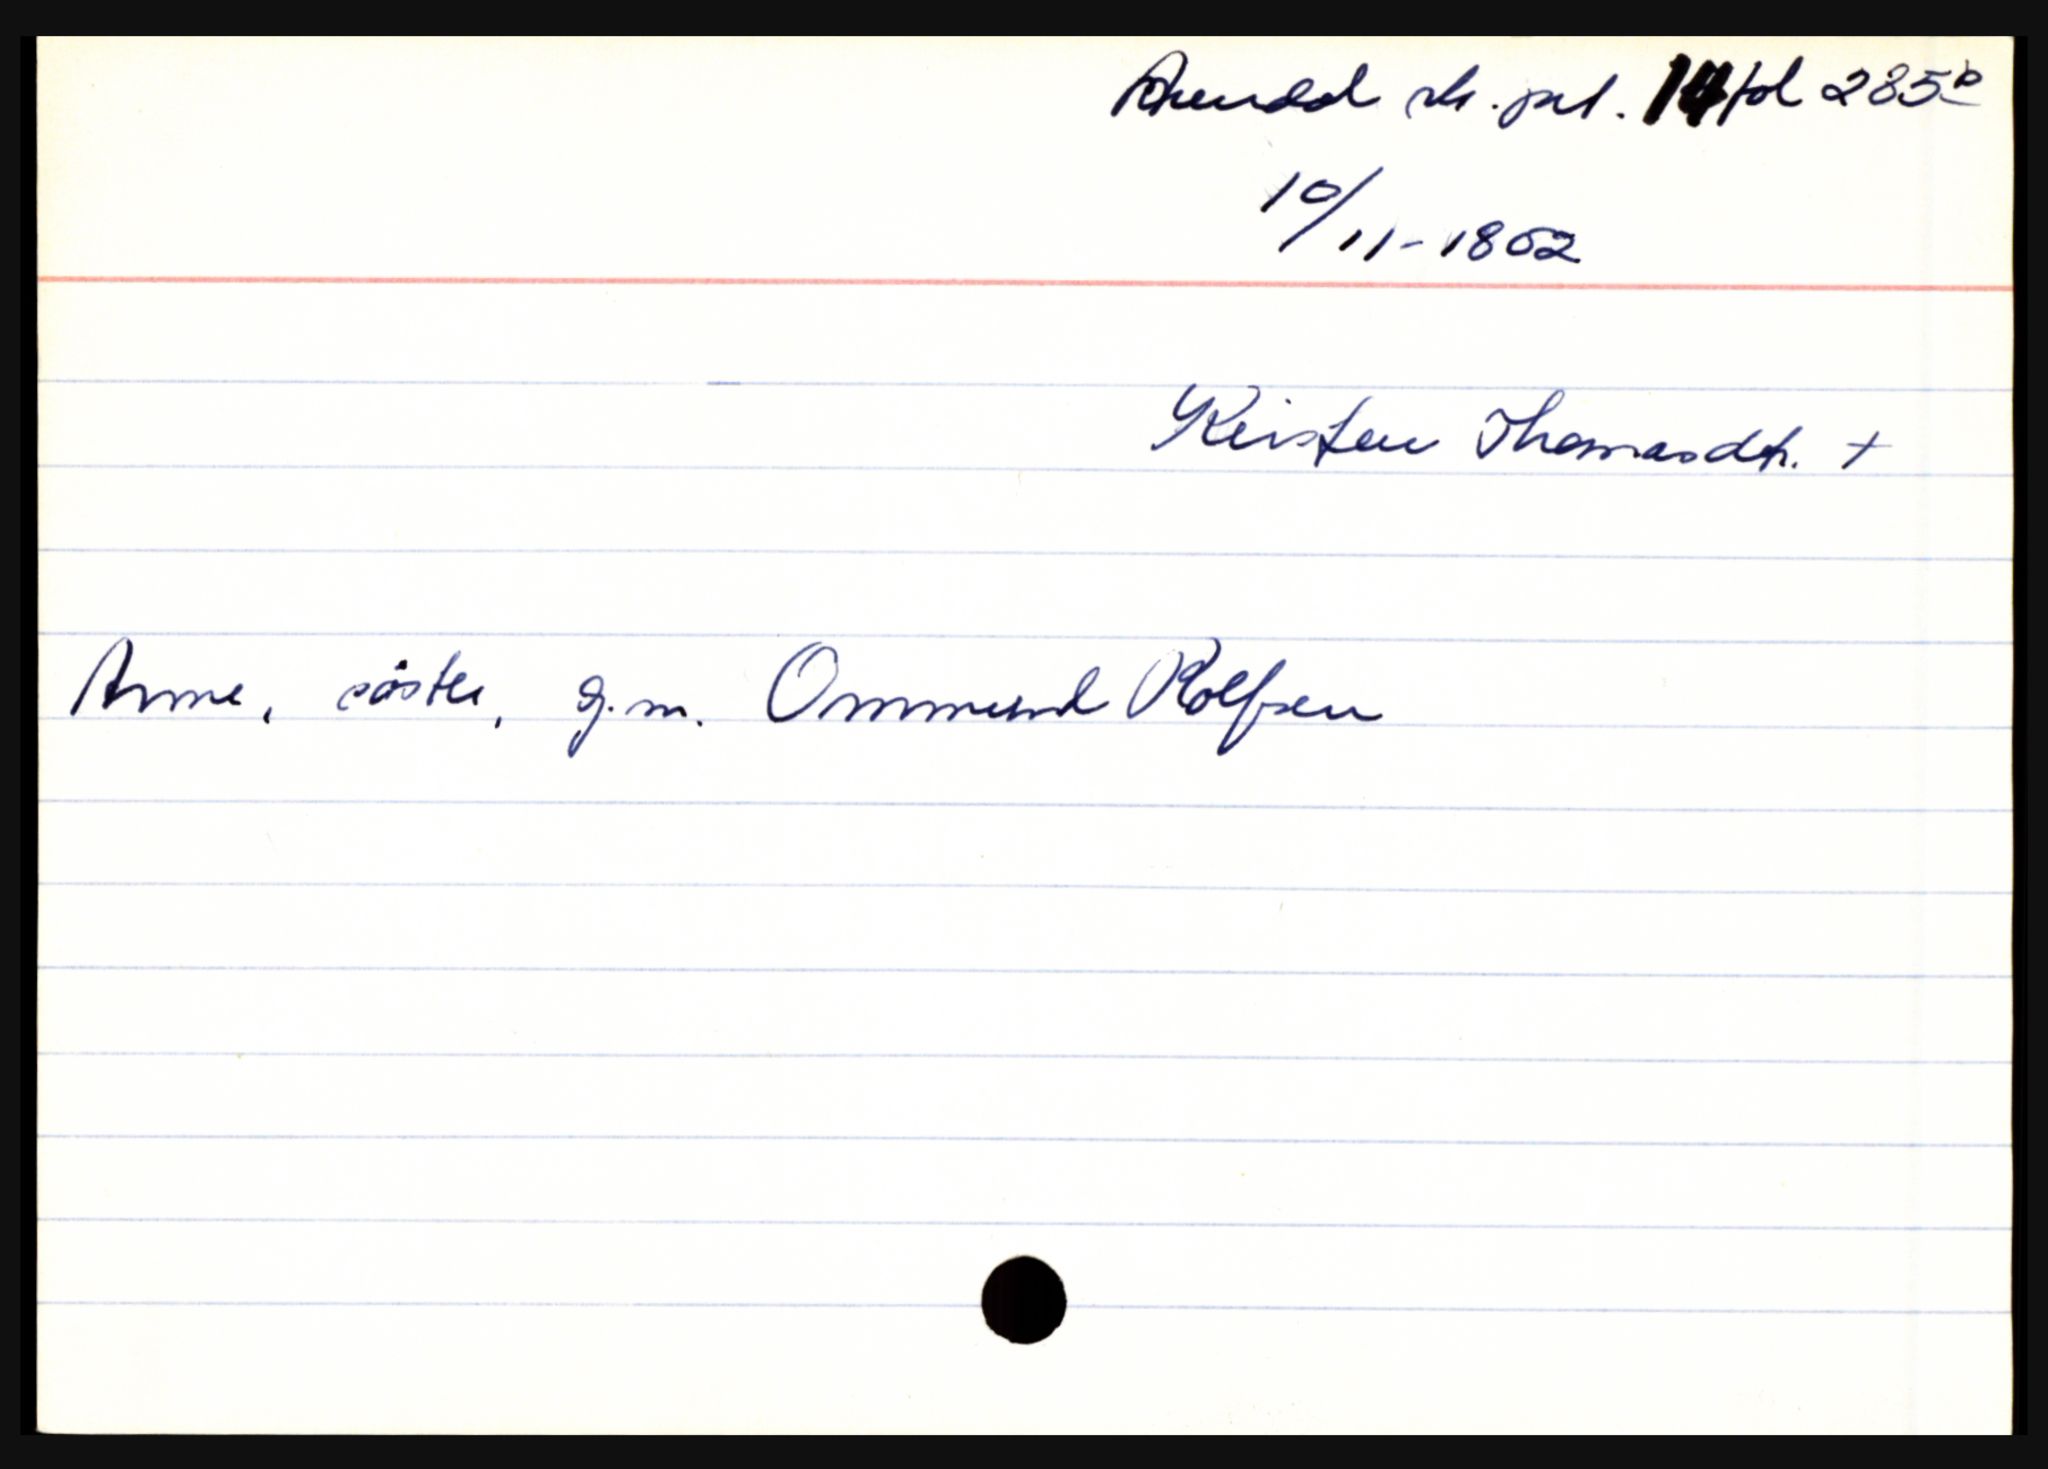 Arendal sk. prt. 14 fol 285b
10/11-1802
Kirsten Thomasdtr. +
Anne, söster, g.m. Ommund Rolfsen